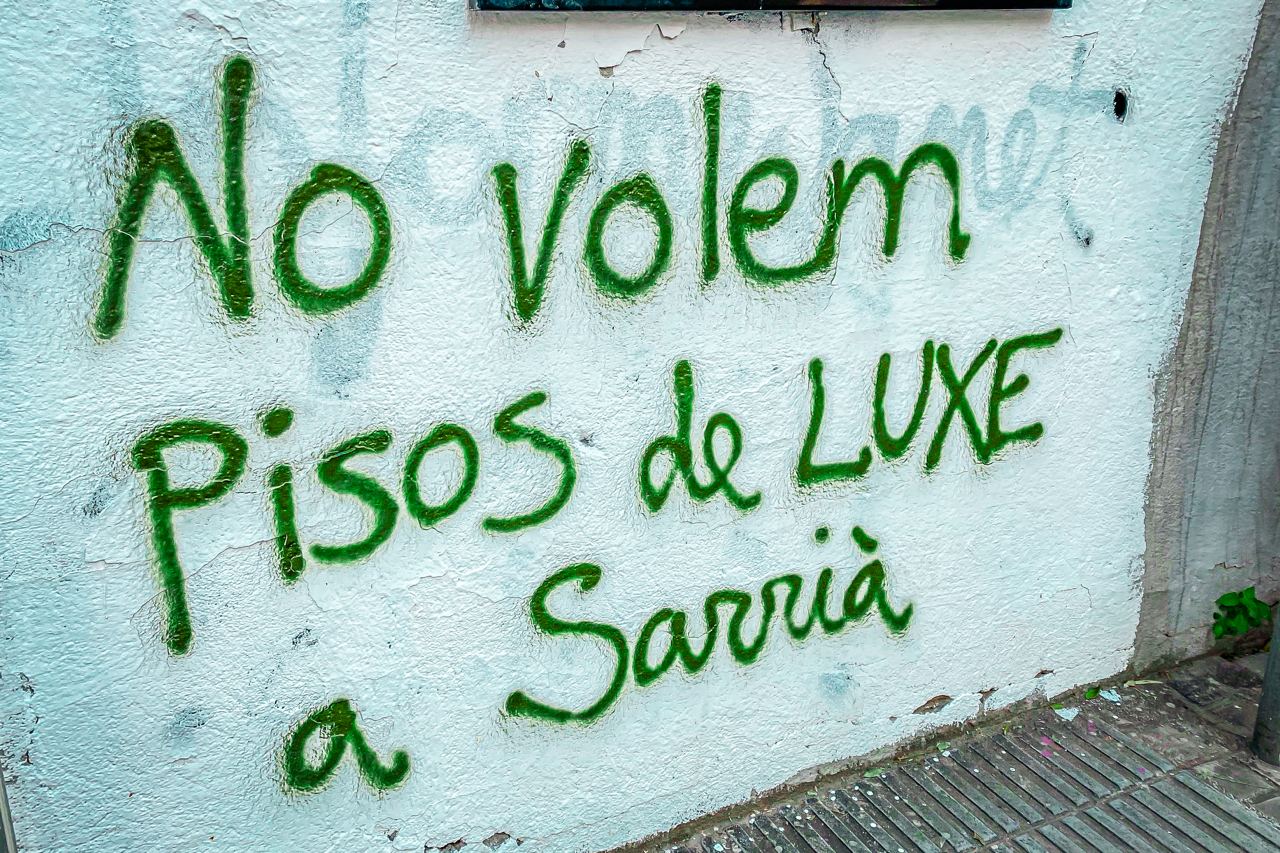 No volem
Pisos de LUXE
a Sarrià